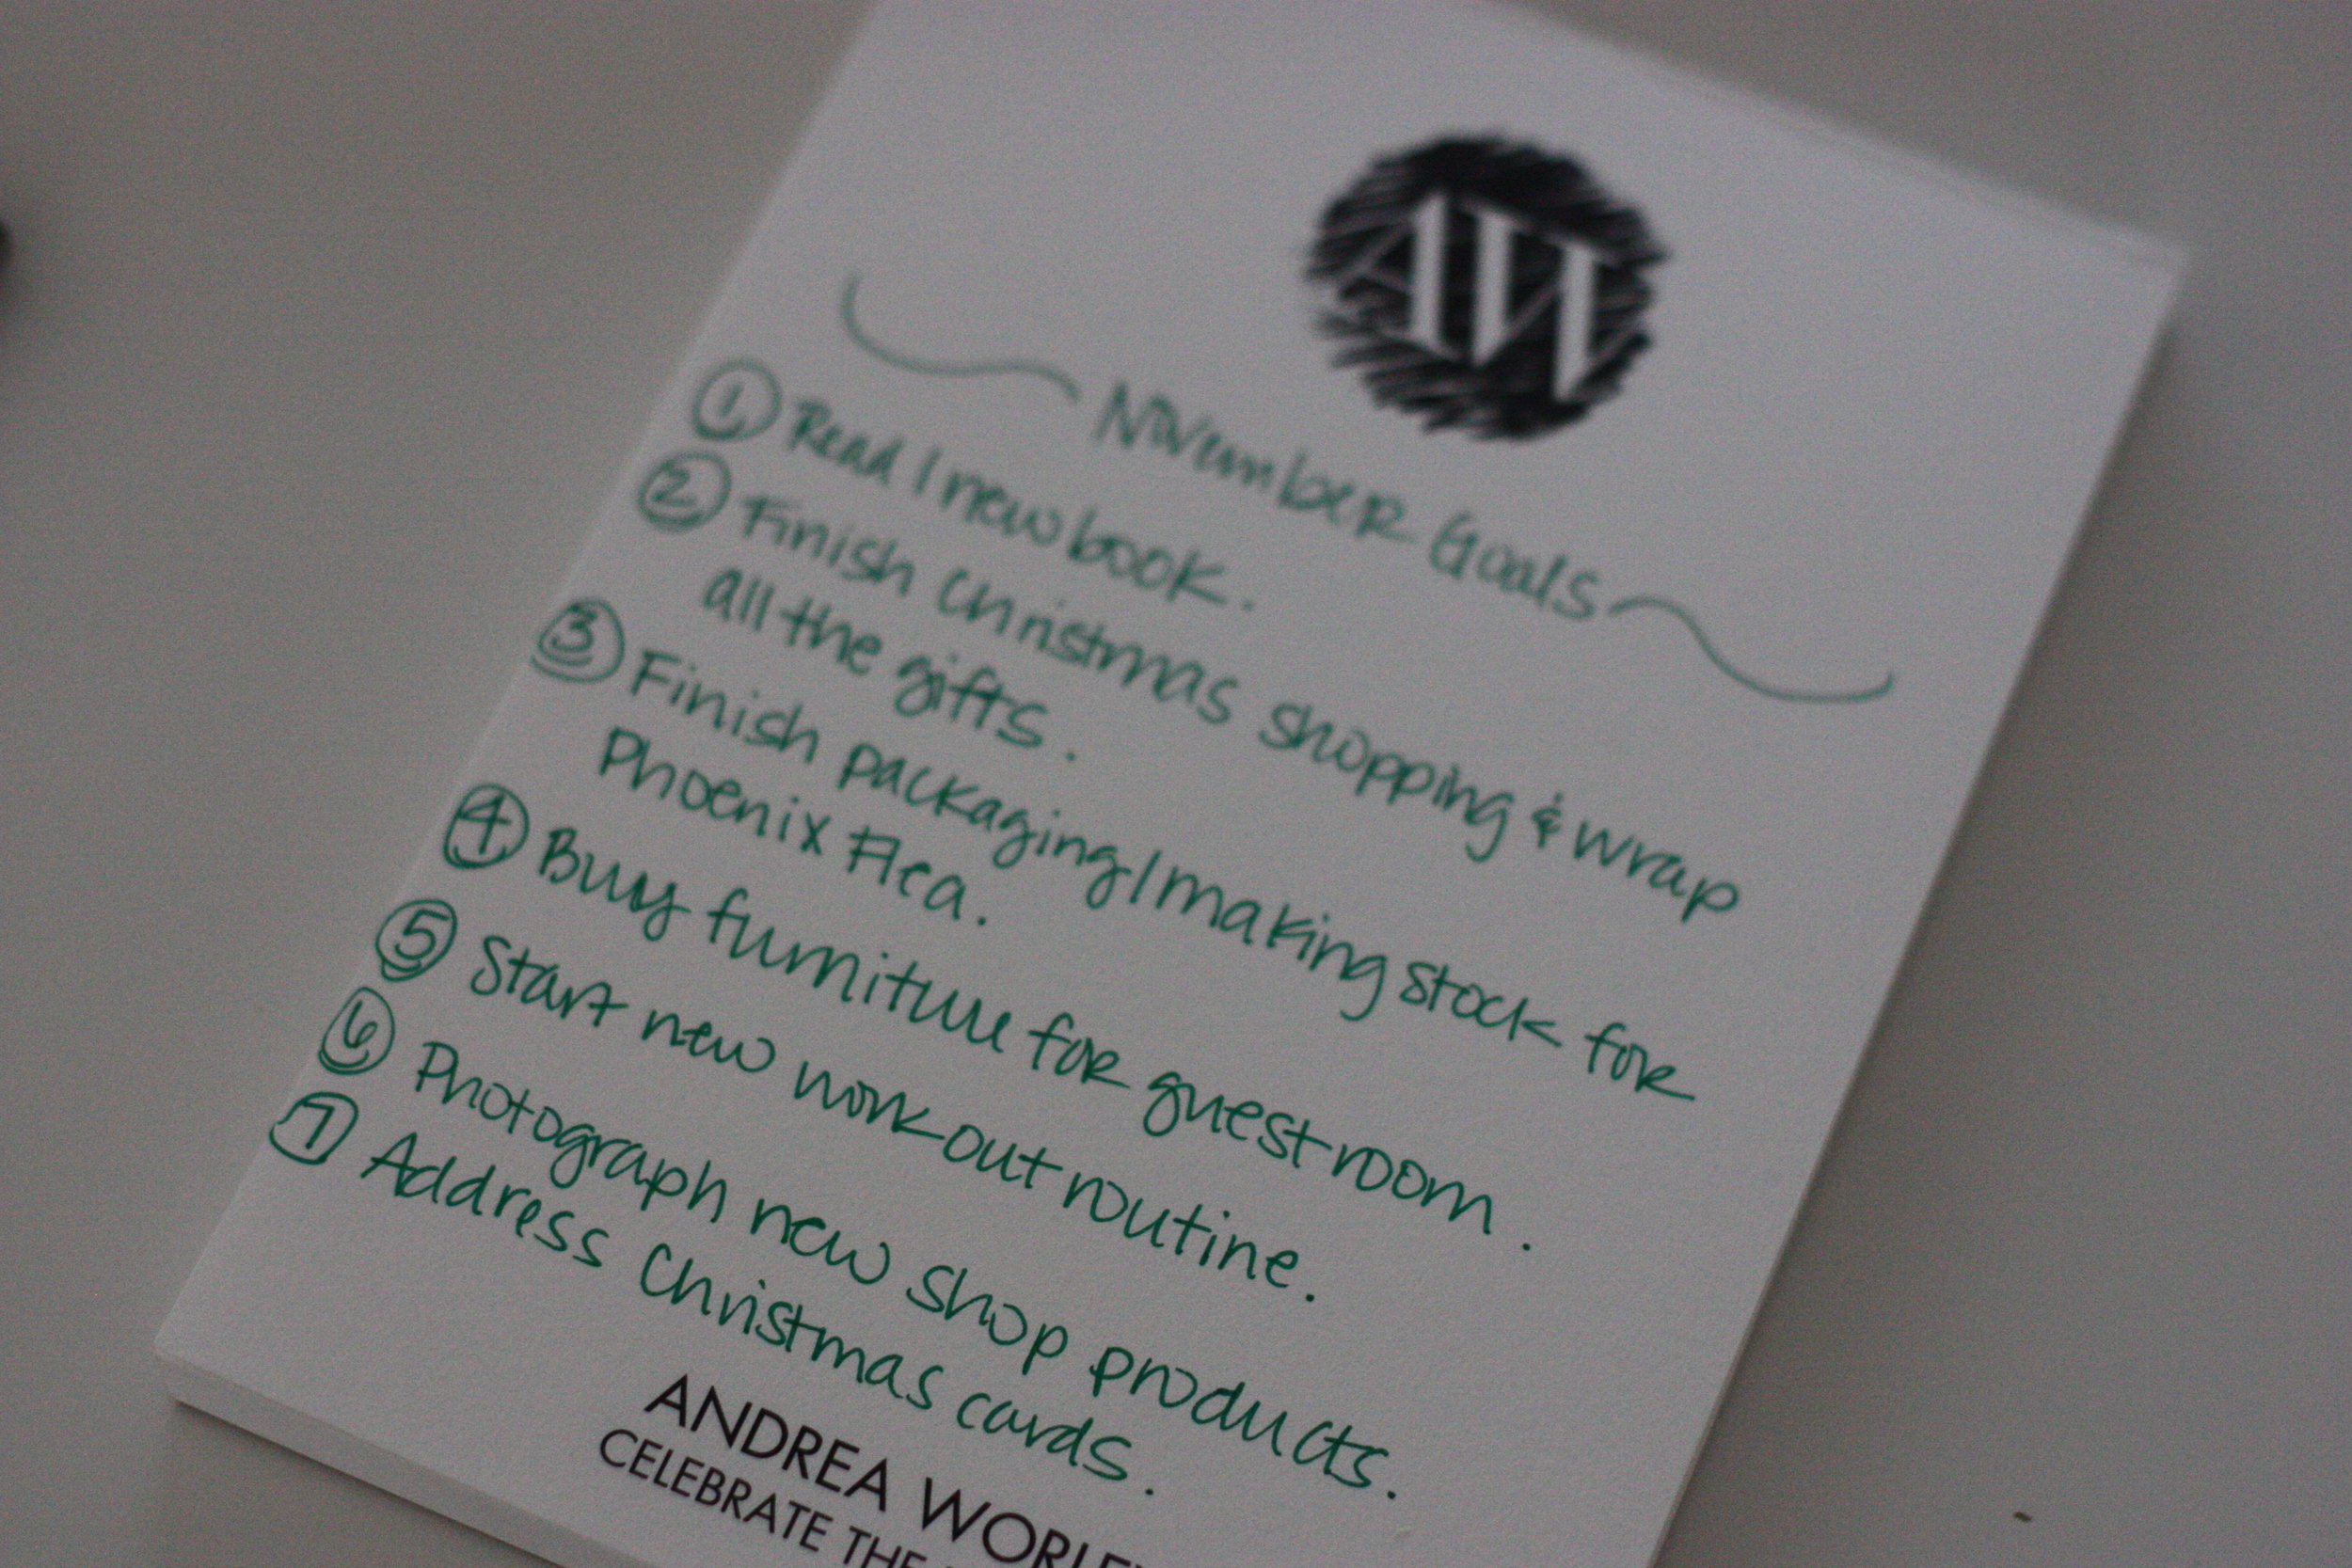 AW
November Goals
1 Read 1 new book.
2 Finish Christmas shopping & wrap
all the gifts.
3 Finish packaging/making stock for
Phoenix Flea.
4 Buy furniture for guest room.
5 Start new workout routine.
6 Photograph new shop products.
7 Address Christmas cards.
ANDREA WORLEY
CELEBRATE THE